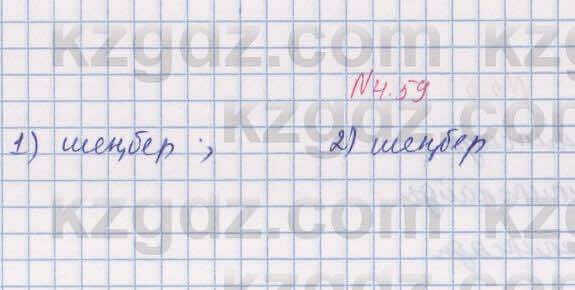 kzgdz.com kzgdz.com
N4.59
kzgdz.com
1) шеңбер ; 2) шеңбер
kzgdz.com